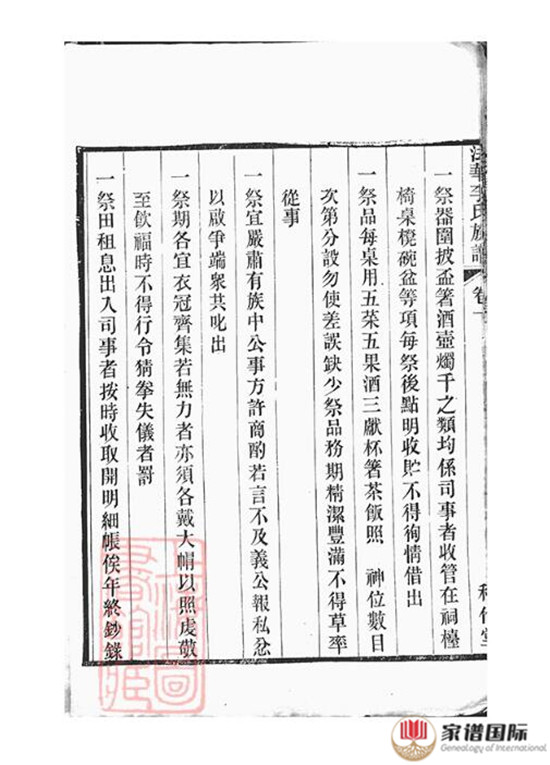 法華李氏族譜 卷
一祭器圍披盃箸酒壺燭千之類均係司事者收管在祠檯
椅桌櫈碗盆等項每祭後點明收貯不得徇情借出
一祭品每桌用五菜五果酒三獻杯箸茶飯照 神位數目
次第分設勿使差誤缺少祭品務期精潔豐滿不得草率
從事
一祭宜嚴肅有族中公事方許商酌若言不及義公報私忿
以啟爭端衆共叱出
一祭期各宜衣冠齊集若無力者亦須各戴大帽以照虔敬
至飲福時不得行令猜拳失儀者罰
一祭田租息出入司事者按時收取開明細帳俟年終鈔錄
家谱国际
Genealogy of International